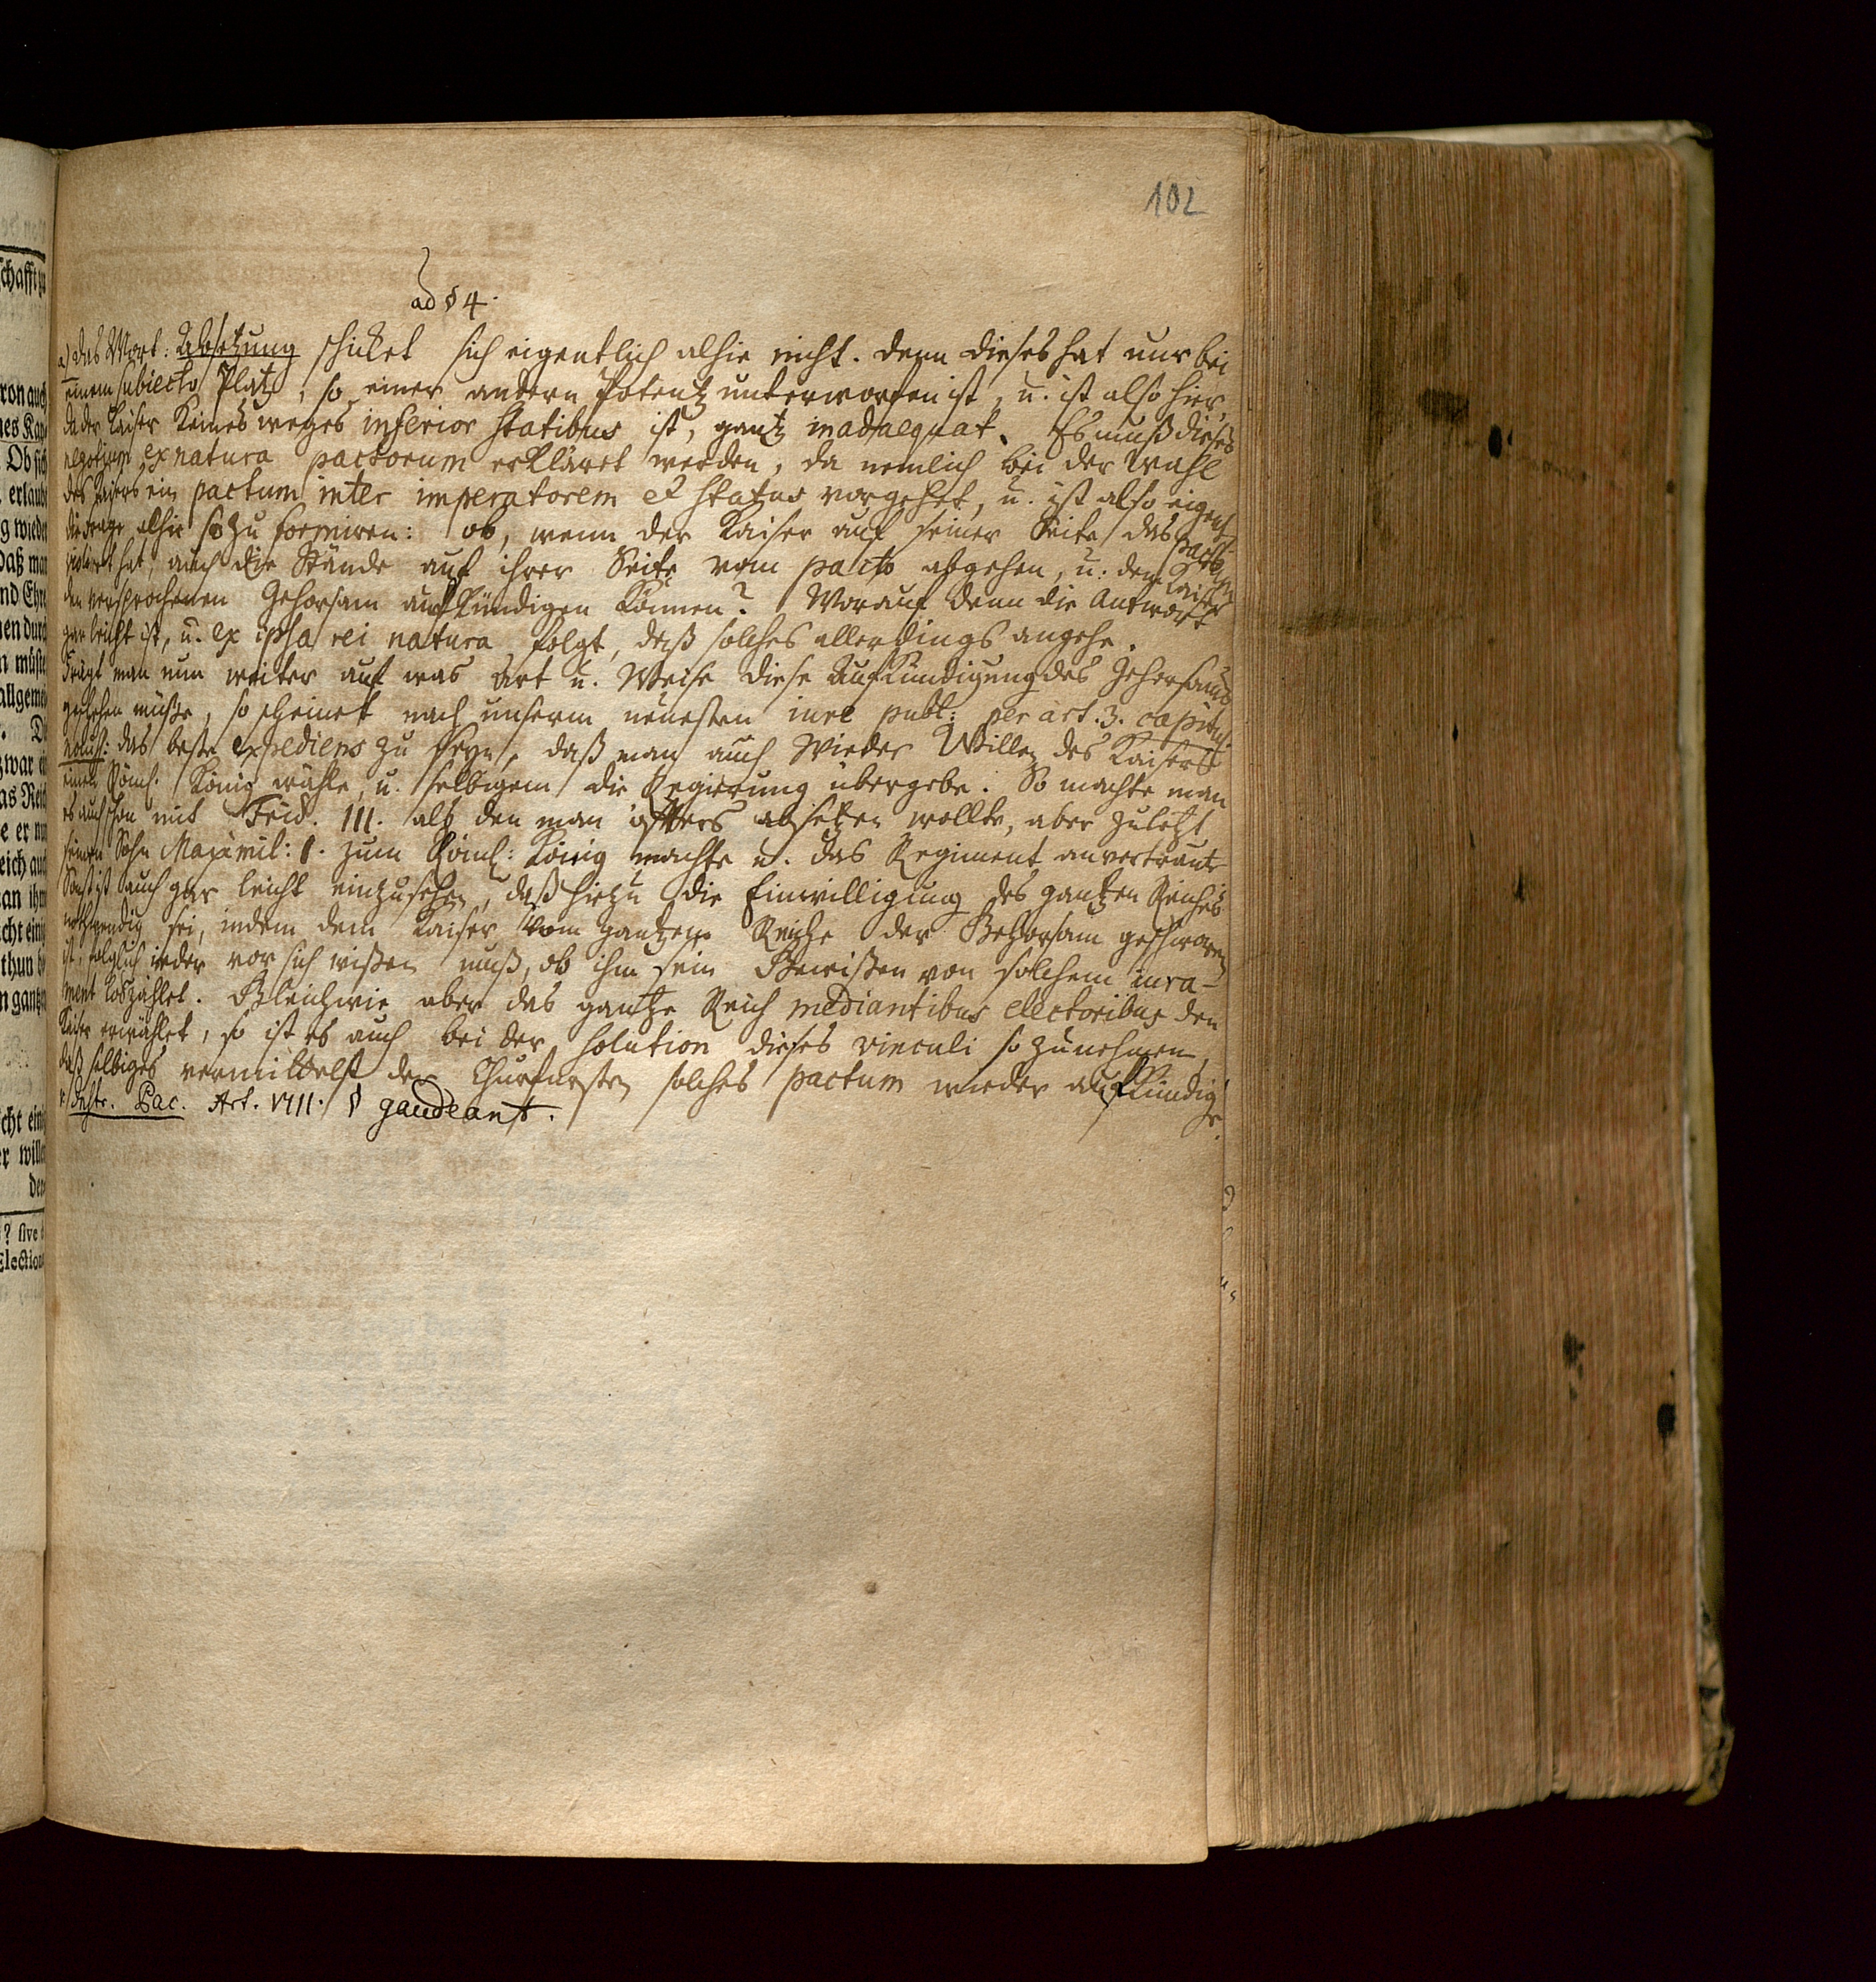 102
ad § 4.
a) Das Wort: Absetzung schicket sich eigentlich alhie nicht. denn dieses hat nur bei
einem subiecto Platz, so einer andern Potentz unterworfen ist, u. ist also hier,
da der Kaiser Keines weges inferior statibus ist, gantz inadaequat. Es muß dieses
negotium ex natura pactorum erkläret werden, da nemlich bei der Wahl
des Kaisers ein pactum inter imperatorem et status vorgehet, u. ist also eigentl.
die Frage alhie so zu formiren: ob, wenn der Kaiser auf seiner Seite das pactum
violiret hat, auch die Stände auf ihrer Seite vom pacto abgehen, u. dem Kaiser
den versprochenen Gehorsam aufkündigen können? Worauf denn die Antwort
gar leicht ist, u. ex ipsa rei natura folgt, daß solches allerdings angehe.
Fragt man nun weiter auf was Art u. Weise diese Aufkündigung des Gehorsams
geschehen müße, so scheinet nach unserm neuesten iure publ: per art. 3. capitul.
das beste expediens zu seyn, daß man auch wieder Willen des Kaisers
einen Röml. König wähle, u. selbigem die Regierung übergebe. So machte man
es auch schon mit Frid. III. als den man öffters absetzen wollte, aber zuletzt
seinen Sohn Maximil: I. zum Röml: König machte u. das Regiment anvertraute
Sonst ist auch gar leicht einzusehen, daß hiezu die Einwilligung des gantzen Reiches
nothwendig sei, indem dem Kaiser vom gantzen Reiche der Gehorsam geschworen
ist, folglich ieder vor sich wißen muß, ob ihm sein Gewißen von solchem iura-
ment loszählet. Gleichwie aber das gantze Reich mediantibus electoribus den
Kaiser erwählet, so ist es auch bei der solution dieses vinculi so zu nehmen,
daß selbiges vermittelst der Churfürsten solches pactum wieder aufkündige.
Instr. Pac. Art. VIII. § gaudeant.
schafft
ron auch
nes Kay
Ob sich
erlaubt
g wieder
Daß man
nd Ehre
nen durch
n müste
allgemei
zwar ei
as Reich
e er nun
eich auch
an ihm
cht einig
thun
n gantzen
cht einig
er willen
der
? sive
Election